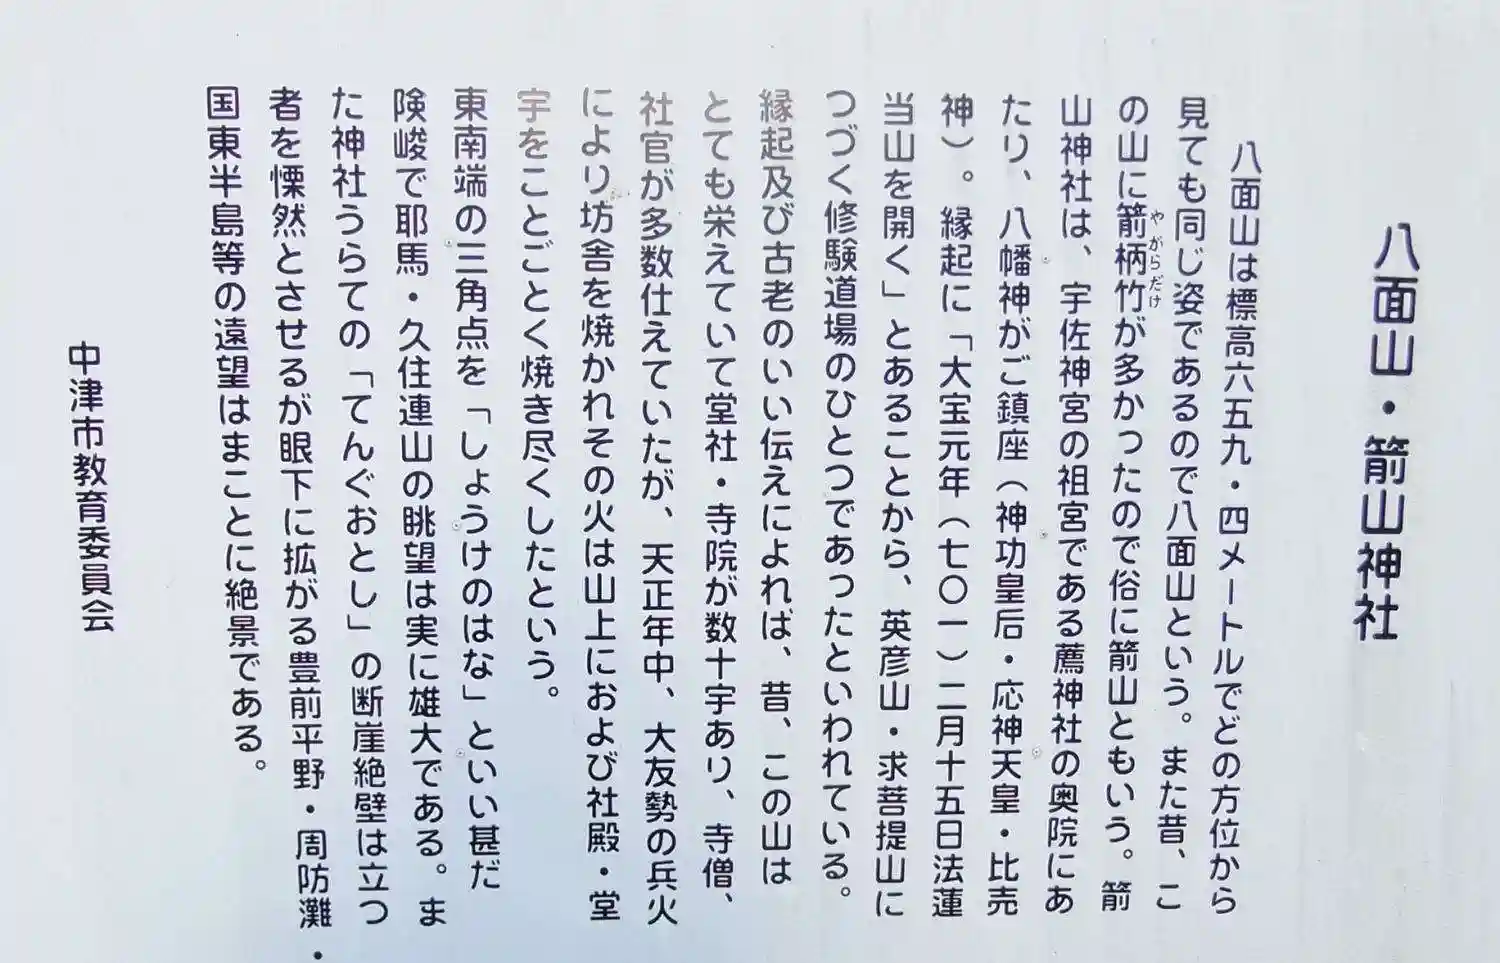 八面山・箭山神社
八面山は標高六五九・四メートルでどの方位から
見ても同じ姿であるので八面山という。また昔、こ
の山に箭柄竹が多かったので俗に箭山ともいう。箭
やがらだけ
山神社は、宇佐神宮の祖宮である薦神社の奥院にあ
たり、八幡神がご鎮座（神功皇后・応神天皇・比売
神）。縁起に「大宝元年（七〇一）二月十五日法蓮
当山を開く」とあることから、英彦山・求菩提山に
つづく修験道場のひとつであったといわれている。
縁起及び古老のいい伝えによれば、昔、この山は
とても栄えていて堂社・寺院が数十宇あり、寺僧、
社官が多数仕えていたが、天正年中、大友勢の兵火
により坊舎を焼かれその火は山上におよび社殿・堂
宇をことごとく焼き尽くしたという。
東南端の三角点を「しょうけのはな」といい甚だ
険峻で耶馬・久住連山の眺望は実に雄大である。ま
た神社うらての「てんぐおとし」の断崖絶壁は立つ
者を慄然とさせるが眼下に拡がる豊前平野・周防灘・
国東半島等の遠望はまことに絶景である。
中津市教育委員会